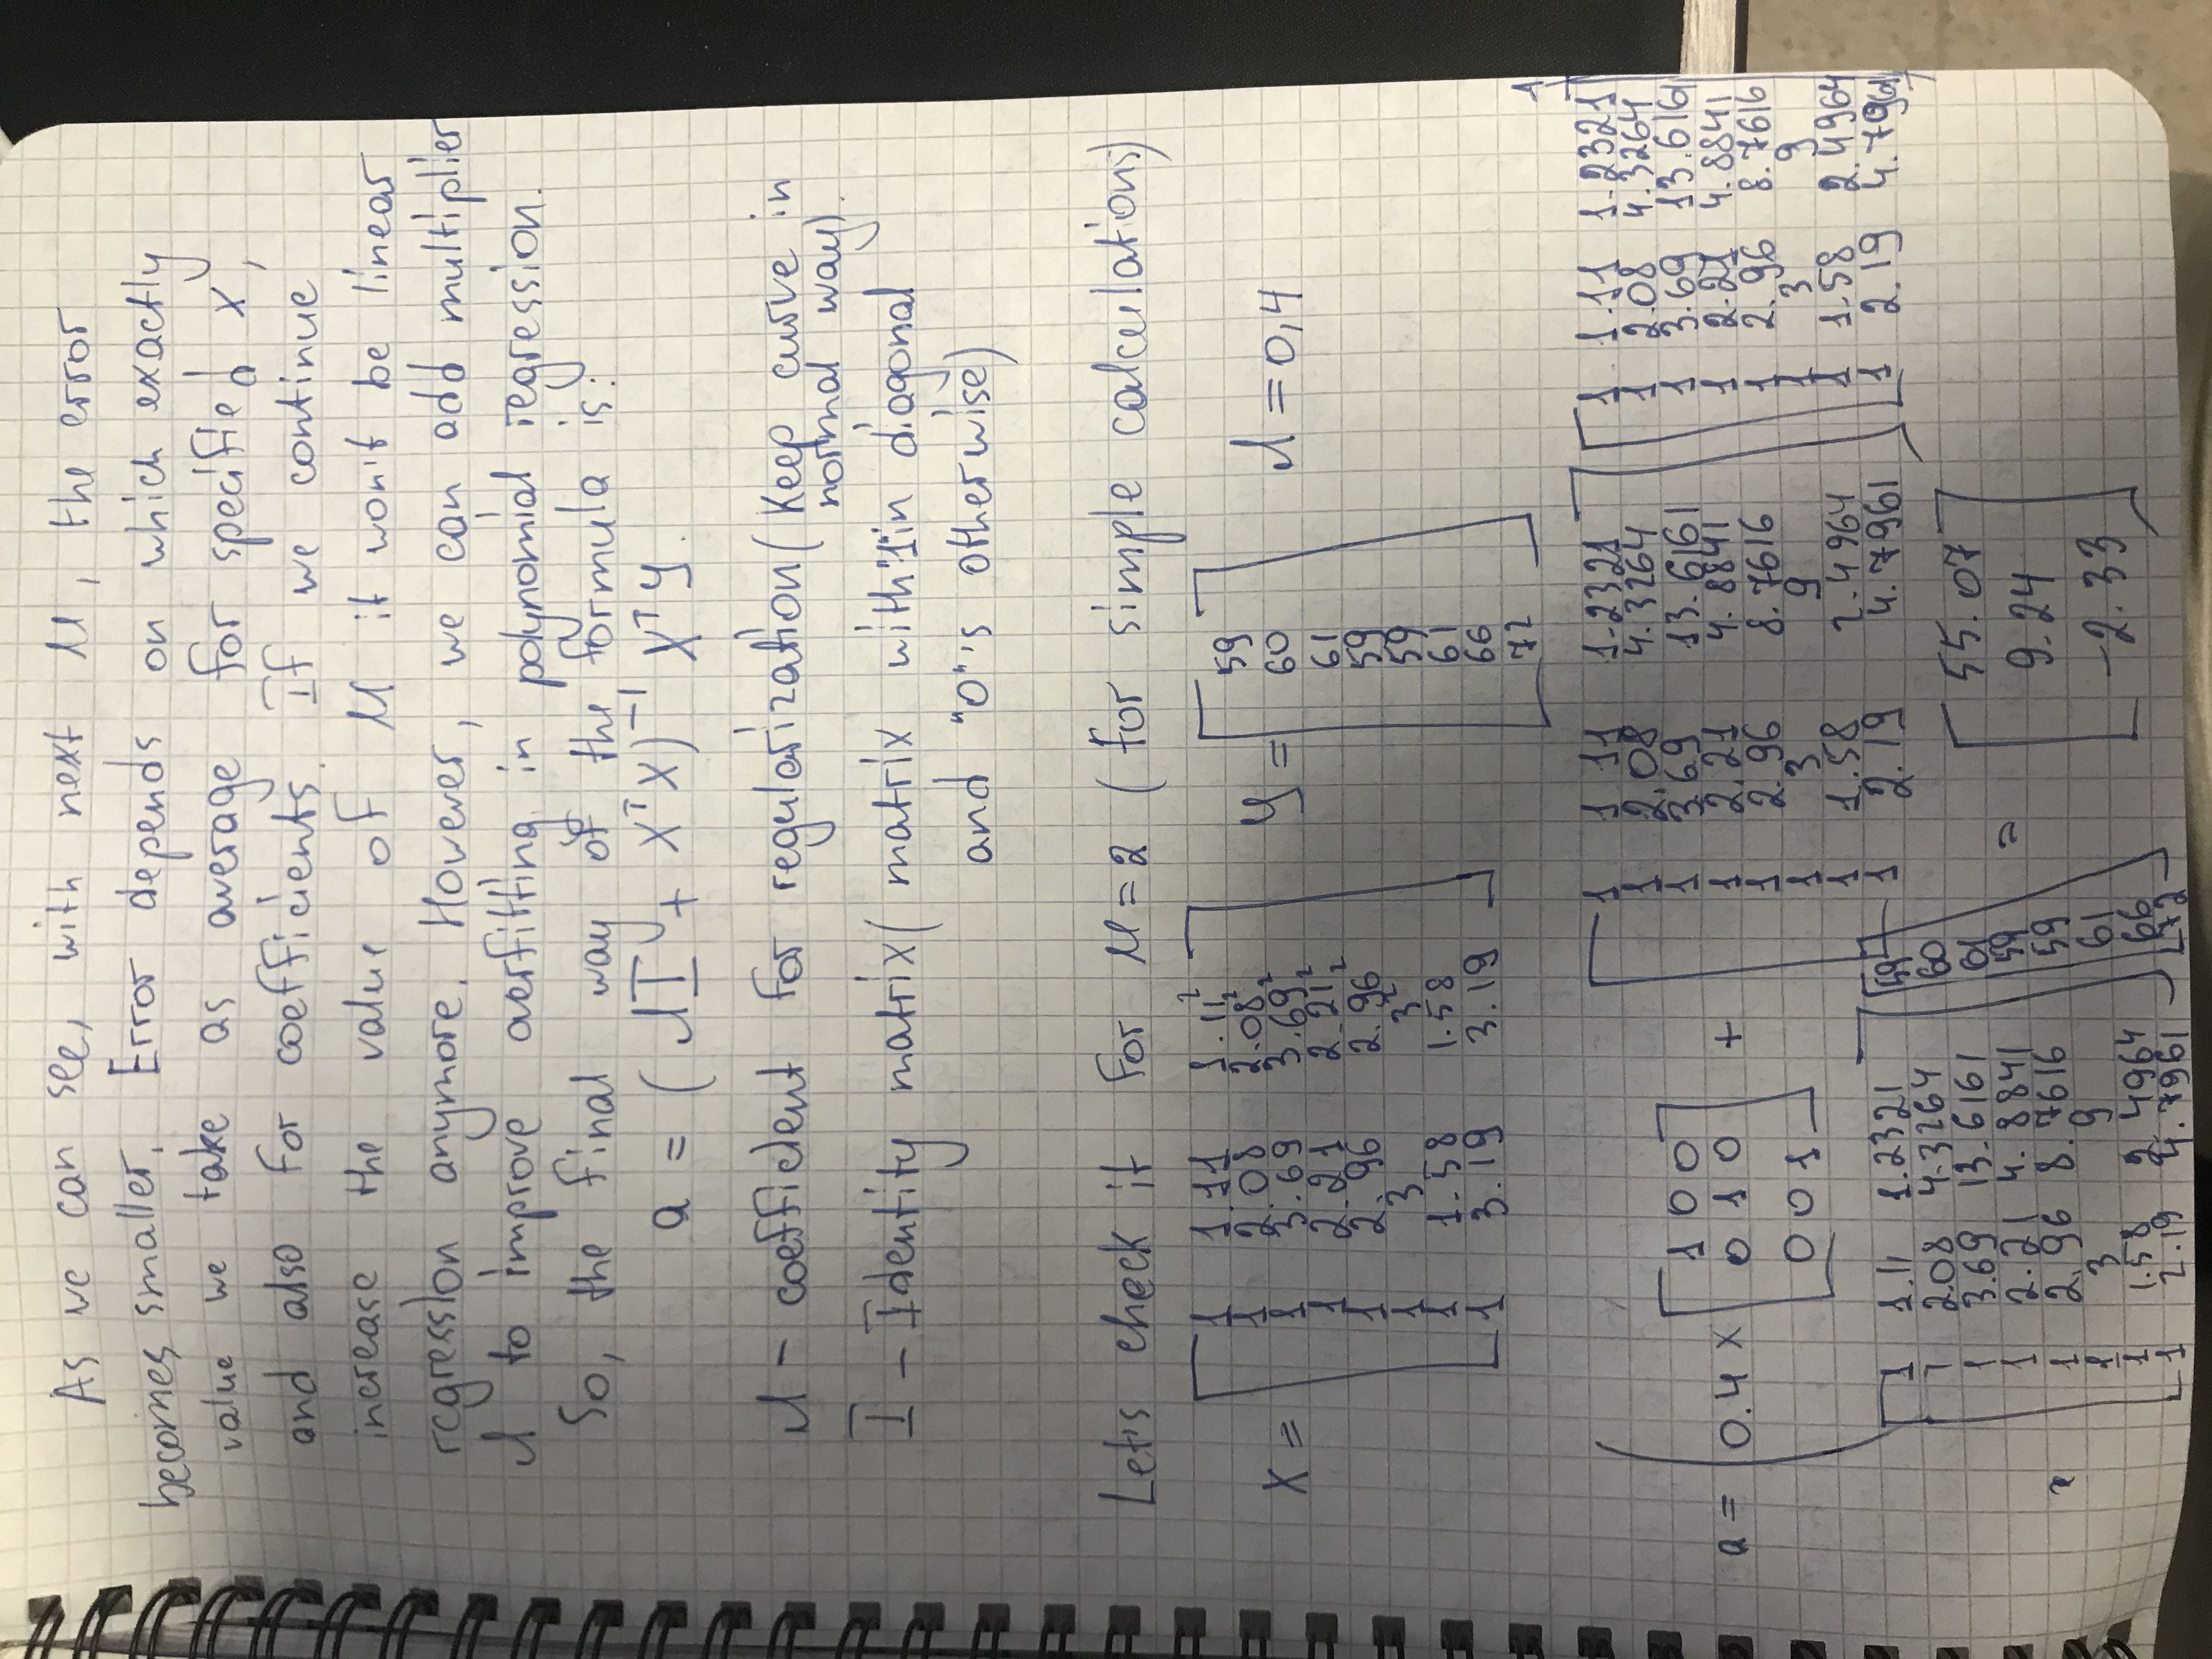 As we can see, with next M, the error
becomes smaller. Error depends on which exactly
value we take as average for specified x,
and also for coefficients. If we continue
increase the value of M it won't be linear
regression anymore. However, we can add multiplier
λ to improve overfitting in polynomial regression.
So, the final way of the formula is:
a = (λI + XᵀX)⁻¹ XᵀY.
λ - coefficient for regularization (keep curve in
normal way).
I - Identity matrix (matrix with "1" in diagonal
and "0"'s otherwise)
Let's check it for M = 2 (for simple calculations)
X = [ 1 1.11 1.11² Y = [ 59 λ = 0,4
1 2.08 2.08² 60
1 3.69 3.69² 61
1 2.21 2.21² 59
1 2.96 2.96² 59
1 3 3² 61
1 1.58 1.58 66
1 3.19 3.19 ] 72 ]
a = ( 0.4 × [ 1 0 0
0 1 0
0 0 1 ] +
[ 1 1.11 1.2321
1 2.08 4.3264
1 3.69 13.6161
1 2.21 4.8841
1 2.96 8.7616
1 3 9
1 1.58 2.4964
1 2.19 4.7961 ]
[ 1 1.11 1.2321
1 2.08 4.3264
1 3.69 13.6161
1 2.21 4.8841
1 2.96 8.7616
1 3 9
1 1.58 2.4964
1 2.19 4.7961 ]
[ 1 1.11 1.2321 ] [ 59
1 2.08 4.3264 60
1 3.69 13.6161 61
1 2.21 4.8841 59
1 2.96 8.7616 59
1 3 9 61
1 1.58 2.4964 66
1 2.19 4.7961 72 ]
= [ 55.07
9.24
-2.33 ]